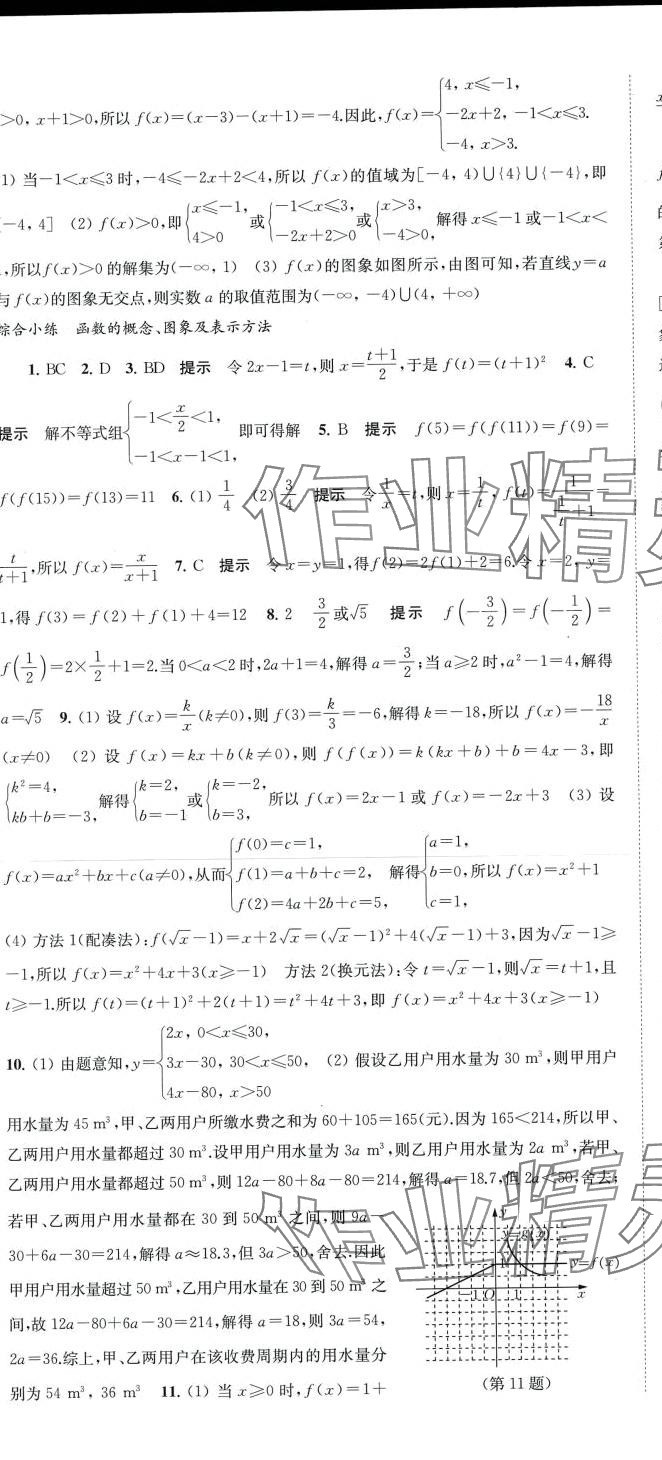 >0, x+1>0,所以 f(x)=(x-3)-(x+1)=-4.因此,f(x)={4, x≤-1, -2x+2, -1<x≤3. -4, x>3.
1) 当-1<x≤3时,-4≤-2x+2<4,所以 f(x)的值域为[-4, 4)∪{4}∪{-4},即
-4, 4] (2) f(x)>0,即{x≤-1, 4>0 或{-1<x≤3, -2x+2>0 或{x>3, -4>0, 解得x≤-1或-1<x<
,所以f(x)>0的解集为(-∞, 1) (3) f(x)的图象如图所示,由图可知,若直线y=a
与f(x)的图象无交点,则实数 a 的取值范围为(-∞, -4)∪(4, +∞)
综合小练 函数的概念、图象及表示方法
1. BC 2. D 3. BD 提示 令2x-1=t,则x=(t+1)/2,于是 f(t)=(t+1)² 4. C
提示 解不等式组{-1<x/2<1, -1<x-1<1, 即可得解 5. B 提示 f(5)=f(f(11))=f(9)=
f(f(15))=f(13)=11 6. (1) 1/4 (2) 3/4 提示 令1/x=t,则x=1/t, f(t)=1/(1/t+1)=
t/(t+1),所以 f(x)=x/(x+1) 7. C 提示 令x=y=1,得f(2)=2f(1)+2=6.令x=2, y=
1,得 f(3)=f(2)+f(1)+4=12 8. 2 3/2或√5 提示 f(-3/2)=f(-1/2)=
f(1/2)=2×1/2+1=2.当0<a<2时,2a+1=4,解得a=3/2;当a≥2时,a²-1=4,解得
a=√5 9. (1) 设 f(x)=k/x(k≠0),则 f(3)=k/3=-6,解得k=-18,所以 f(x)=-18/x
(x≠0) (2) 设 f(x)=kx+b(k≠0),则 f(f(x))=k(kx+b)+b=4x-3,即
{k²=4, kb+b=-3, 解得{k=2, b=-1 或{k=-2, b=3, 所以 f(x)=2x-1或 f(x)=-2x+3 (3) 设
f(x)=ax²+bx+c(a≠0),从而{f(0)=c=1, f(1)=a+b+c=2, f(2)=4a+2b+c=5, 解得{a=1, b=0, c=1, 所以 f(x)=x²+1
(4) 方法1(配凑法):f(√x-1)=x+2√x=(√x-1)²+4(√x-1)+3,因为√x-1≥
-1,所以 f(x)=x²+4x+3(x≥-1) 方法2(换元法):令t=√x-1,则√x=t+1,且
t≥-1.所以 f(t)=(t+1)²+2(t+1)=t²+4t+3,即 f(x)=x²+4x+3(x≥-1)
10. (1) 由题意知,y={2x, 0<x≤30, 3x-30, 30<x≤50, 4x-80, x>50 (2) 假设乙用户用水量为30 m³,则甲用户
用水量为45 m³,甲、乙两用户所缴水费之和为60+105=165(元).因为165<214,所以甲、
乙两用户用水量都超过30 m³.设甲用户用水量为3a m³,则乙用户用水量为2a m³,若甲、
乙两用户用水量都超过50 m³,则12a-80+8a-80=214,解得a=18.7,但2a<50,舍去;
若甲、乙两用户用水量都在30到50 m³之间,则9a-
30+6a-30=214,解得a≈18.3,但3a>50,舍去.因此
甲用户用水量超过50 m³,乙用户用水量在30到50 m³之
间,故12a-80+6a-30=214,解得a=18,则3a=54,
2a=36.综上,甲、乙两用户在该收费周期内的用水量分
别为54 m³, 36 m³ 11. (1) 当x≥0时,f(x)=1+
y
y=g(x)
y=f(x)
-1 O 1 x
(第11题)
作业精灵
作业精灵